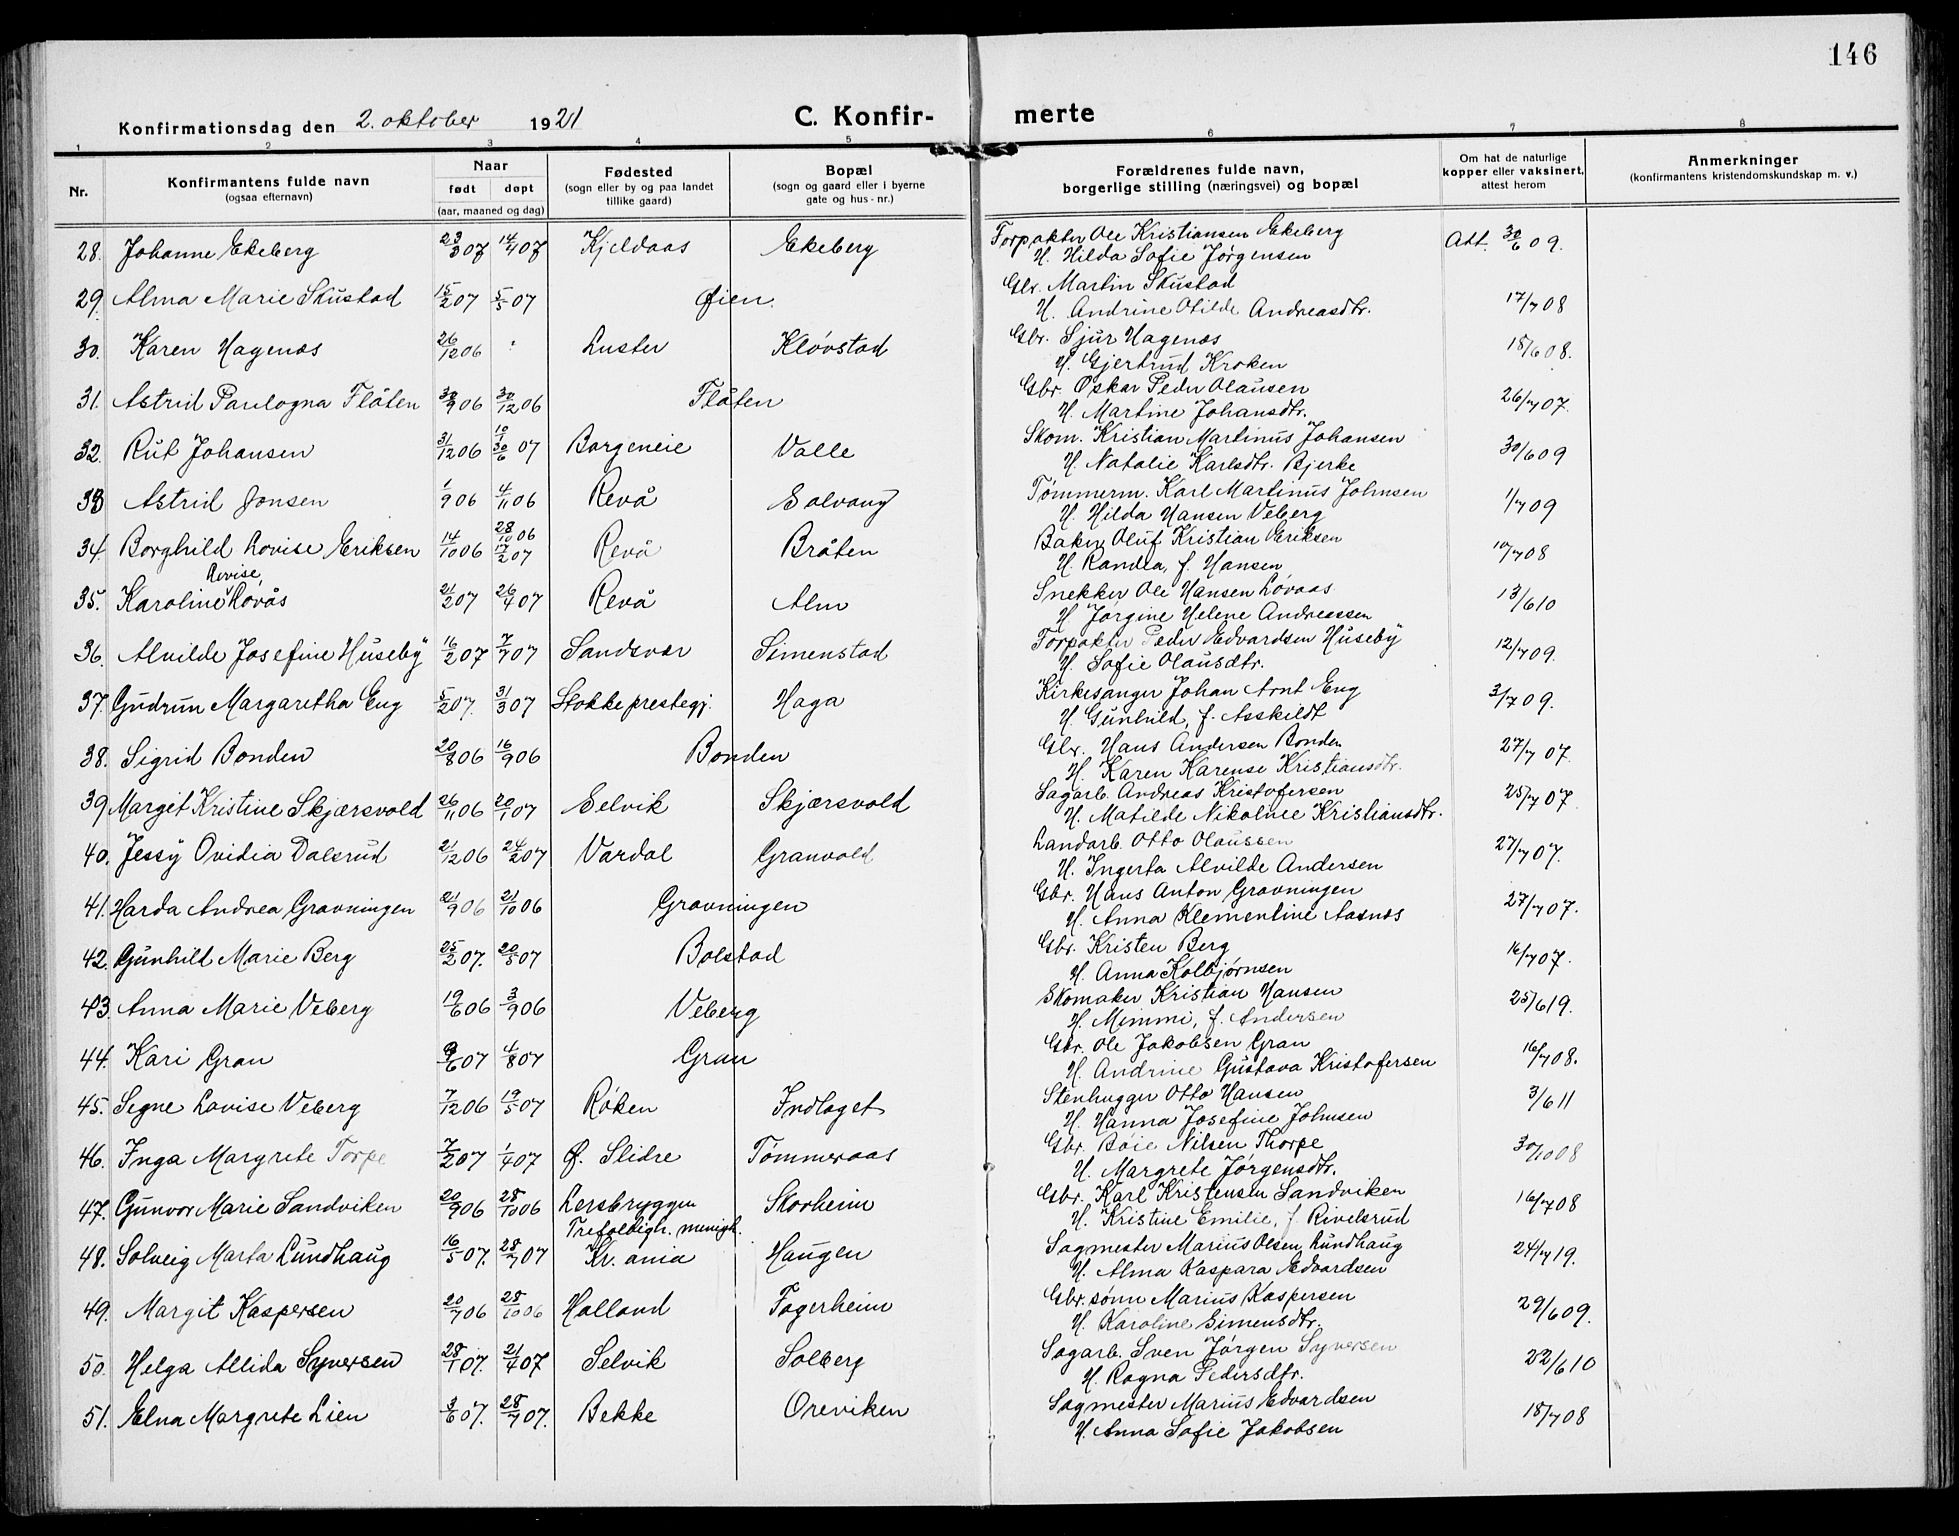 146
Konfirmationsdag den 2. oktober 1921 C. Konfir- merte
1 2 3 4 5 6 7 8
Nr. Konfirmantens fulde navn (ogsaa efternavn) Naar født døpt (aar, maaned og dag) Fødested (sogn eller by og paa landet tillike gaard) Bopæl (sogn og gaard eller i byerne gate og hus-nr.) Forældrenes fulde navn, borgerlige stilling (næringsvei) og bopæl Om hat de naturlige kopper eller vaksinert, attest herom Anmerkninger (konfirmantens kristendomskundskap m. v.)
28. Johanne Ekeberg 23/3 07 14/4 07 Kjeldaas Ekeberg Forpakter Ole Kristiansen Ekeberg Att. 30/6 09.
H. Hilda Sofie Jørgensen
29. Alma Marie Skustad 15/2 07 5/5 07 Øien. Gbr. Martin Skustad 17/7 08
H. Andrine Otilde Andreasdtr.
30. Karen Hagenæs 26/12 06 Luster Kløvstad Gbr. Sjur Hagenæs 18/6 08.
H. Gjertrud Kroken
31. Astrid Paulogna Flåten 30/9 06 30/12 06 Flåten Gbr. Oskar Peder Olausen 26/7 07.
H. Martine Johansdtr.
32. Rut Johansen 31/12 06 10/1 30/6 07 Borgeneie Valle Skom. Kristian Martinus Johansen 30/6 09
H. Natalie Karlsdtr. Bjerke
33 Astrid Jonsen 1/9 06 4/11 06 Revå Solvang Tømmerm. Karl Martinus Johnsen 1/7 09
H. Hilda Hansen Veberg
34. Borghild Lovise Eriksen 14/10 06 28/10 06 17/2 07 Revå Bråten Baker Oluf Kristian Eriksen 10/7 08
H. Randea, f. Hansen
35. Karoline Lovise Lovås 21/2 07 26/4 07 Revå Alm Snekker Ole Hansen Løvaas 13/6 10
H Jørgine Helene Andreassen
36. Alvilde Josefine Huseby 16/2 07 7/7 07 Sandsvær Simenstad Forpakter Peder Edvardsen Huseby 12/7 09.
H. Sofie Olausdtr.
37. Gudrun Margaretha Eng 5/2 07. 31/3 07 Stokke prestegj. Haga Kirkesanger Johan Arnt Eng 3/7 09.
H. Gunhild, f. Asskildt
38. Sigrid Bonden 20/8 06 16/9 06 Bonden Gbr. Hans Andersen Bonden 27/7 07.
H. Karen Karense Kristiansdtr.
39 Margit Kristine Skjærsvold 26/11 06 20/1 07 Selvik Skjærsvold Sagarb. Andreas Kristofersen 25/7 07
H. Matilde Nikolnee Kristiansdtr.
40. Jessy Ovidia Dalsrud 21/12 06 24/2 07 Vardal Granvold Landarb. Otto Olaussen 27/7 07.
H. Ingerta Alvilde Andersen
41. Harda Andrea Gravningen 21/9 06 21/10 06 Gravningen Gbr. Hans Anton Gravningen 27/7 07.
H. Anna Klementine Aasnæs
42. Gunhild Marie Berg 25/2 07. 20/5 07 Bolstad Gbr. Kristen Berg 16/7 07.
H. Anna Kolbjørnsen
43. Anna Marie Veberg 19/6 06 3/9 06 Veberg Skomaker Kristian Hansen 25/6 19.
H. Mimmi, f. Andersen
44. Kari Gran 9/6 07 4/8 07 Gran Gbr. Ole Jakobsen Gran 16/7 08.
H. Andrine Gustava Kristofersen
45. Segne Lovise Veberg 7/12 06 19/5 07 Røken Indlaget Stenhugger Otto Hansen 3/6 11
H. Hanna Josefine Johnsen
46. Inga Margrete Torpe 7/2 07 1/4 07 Ø. Slidre Tømmeraas Gbr. Bøie Nilsen Thorpe 30/10 08
H. Margrete Jørgensdtr.
47. Gunvor Marie Sandviken 20/9 06 28/10 06 Lersbryggen Skorheim Gbr. Karl Kristensen Sandviken 16/7 08
H. Kristine Emilie, f Rivelsrud
48. Solveig Marta Lundhaug 16/5 07. 28/7 07 Trefoldigh. menigh. Kr.ania Haugen Sagmester Marius Olsen Lundhaug 24/7 19.
H. Alma Kaspara Edvardsen
49. Margit Kaspersen 20/7 06 28/10 06 Halland Fagerheim Gbr. sønn Marius Kaspersen 29/6 09.
H. Karoline Simensdtr.
50. Helga Allida Syversen 28/1 07. 21/4 07 Selvik Solberg Sagarb. Sven Jørgen Syversen 22/6 10
H. Ragna Pedersdtr.
51. Elna Margrete Lien 3/6 07. 28/7 07. Bekke Oreviken Sagmester Marius Edvardsen 18/7 08
H. Anna Sofie Jakobsen